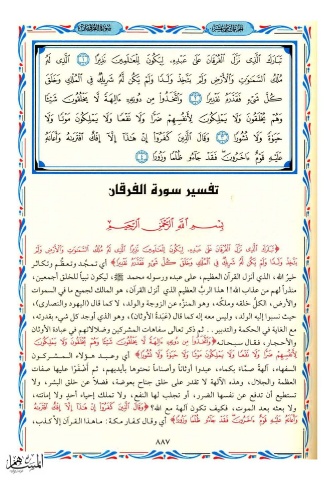 تَبَارَكَ الَّذِي نَزَّلَ الْفُرْقَانَ عَلَى عَبْدِهِ لِيَكُونَ لِلْعَالَمِينَ نَذِيرًا ١ الَّذِي لَهُ
مُلْكُ السَّمَوَاتِ وَالْأَرْضِ وَلَمْ يَتَّخِذْ وَلَدًا وَلَمْ يَكُن لَّهُ شَرِيكٌ فِي الْمُلْكِ وَخَلَقَ
كُلَّ شَيْءٍ فَقَدَّرَهُ تَقْدِيرًا ٢ وَاتَّخَذُوا مِن دُونِهِ ءَالِهَةً لَّا يَخْلُقُونَ شَيْئًا
وَهُمْ يُخْلَقُونَ وَلَا يَمْلِكُونَ لِأَنفُسِهِمْ ضَرًّا وَلَا نَفْعًا وَلَا يَمْلِكُونَ مَوْتًا وَلَا
حَيَوٰةً وَلَا نُشُورًا ٣ وَقَالَ الَّذِينَ كَفَرُوا إِنْ هَٰذَا إِلَّا إِفْكٌ افْتَرَاهُ وَأَعَانَهُ
عَلَيْهِ قَوْمٌ ءَاخَرُونَ فَقَدْ جَاءُو ظُلْمًا وَزُورًا ٤
تفسير سورة الفرقان
بسم الله الرحمن الرحيم
﴿تَبَارَكَ الَّذِي نَزَّلَ الْفُرْقَانَ عَلَى عَبْدِهِ لِيَكُونَ لِلْعَالَمِينَ نَذِيرًا الَّذِي لَهُ مُلْكُ السَّمَوَاتِ وَالْأَرْضِ وَلَمْ
يَتَّخِذْ وَلَدًا وَلَمْ يَكُن لَّهُ شَرِيكٌ فِي الْمُلْكِ وَخَلَقَ كُلَّ شَيْءٍ فَقَدَّرَهُ تَقْدِيرًا﴾ أي تمجَّد وتعظَّم وتكاثر
خيرُ الله، الذي أنزل القرآن العظيم، على عبده ورسوله محمد ﷺ، ليكون نبياً للخلق أجمعين،
منذراً لهم من عذاب الله!! هذا الربُّ العظيم الذي أنزل القرآن، هو المالك لجميع ما في السموات
والأرض، الكلُّ خلقه وملكُه، وهو المنزَّه عن الزوجة والولد، لا كما قال (اليهود والنصارى)،
حيث نسبوا إليه الولد، وليس معه إله كما قال (عَبَدةُ الأوثان)، وهو الذي أوجد كل شيء بقدرته،
مع الغاية في الحكمة والتدبير . . ثم ذكر تعالى سفاهات المشركين وضلالاتهم في عبادة الأوثان
والأحجار، فقال سبحانه ﴿وَاتَّخَذُوا مِن دُونِهِ ءَالِهَةً لَّا يَخْلُقُونَ شَيْئًا وَهُمْ يُخْلَقُونَ وَلَا يَمْلِكُونَ
لِأَنفُسِهِمْ ضَرًّا وَلَا نَفْعًا وَلَا يَمْلِكُونَ مَوْتًا وَلَا حَيَوٰةً وَلَا نُشُورًا﴾ أي وعبد هؤلاء المشركون
السفهاء، آلهةً صمّاء بكماء، عبدوا أوثاناً وأصناماً نحتوها بأيديهم، ثم أضفَوْا عليها صفات
العظمة والجلال، وهذه الآلهة لا تقدر على خلق جناح بعوضة، فضلاً عن خلق البشر، ولا
تستطيع أن تدفع عن نفسها الضرر، أو تجلب لها النفع، ولا تملك إحياء أحدٍ ولا إماتته،
ولا بعثه بعد الموت، فكيف تكون آلهة مع الله؟ ﴿وَقَالَ الَّذِينَ كَفَرُوا إِنْ هَٰذَا إِلَّا إِفْكٌ افْتَرَاهُ
وَأَعَانَهُ عَلَيْهِ قَوْمٌ ءَاخَرُونَ فَقَدْ جَاءُو ظُلْمًا وَزُورًا﴾ أي وقال كفار مكة: ما هذا القرآن إلا كذب،
٨٨٧